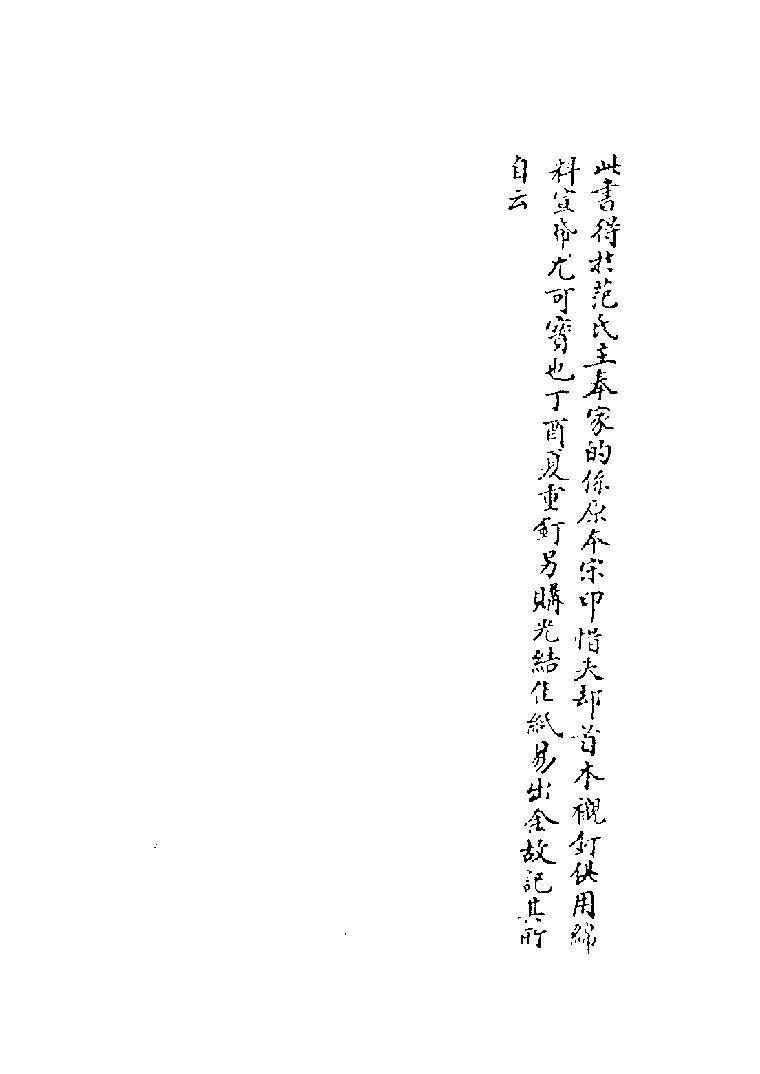 此書得於范氏主奉家的係原本宋印惜失却首本襯釘俱用綿
料宣帋尤可寶也丁酉夏重釘另購光結佳紙易出余故記其所
自云